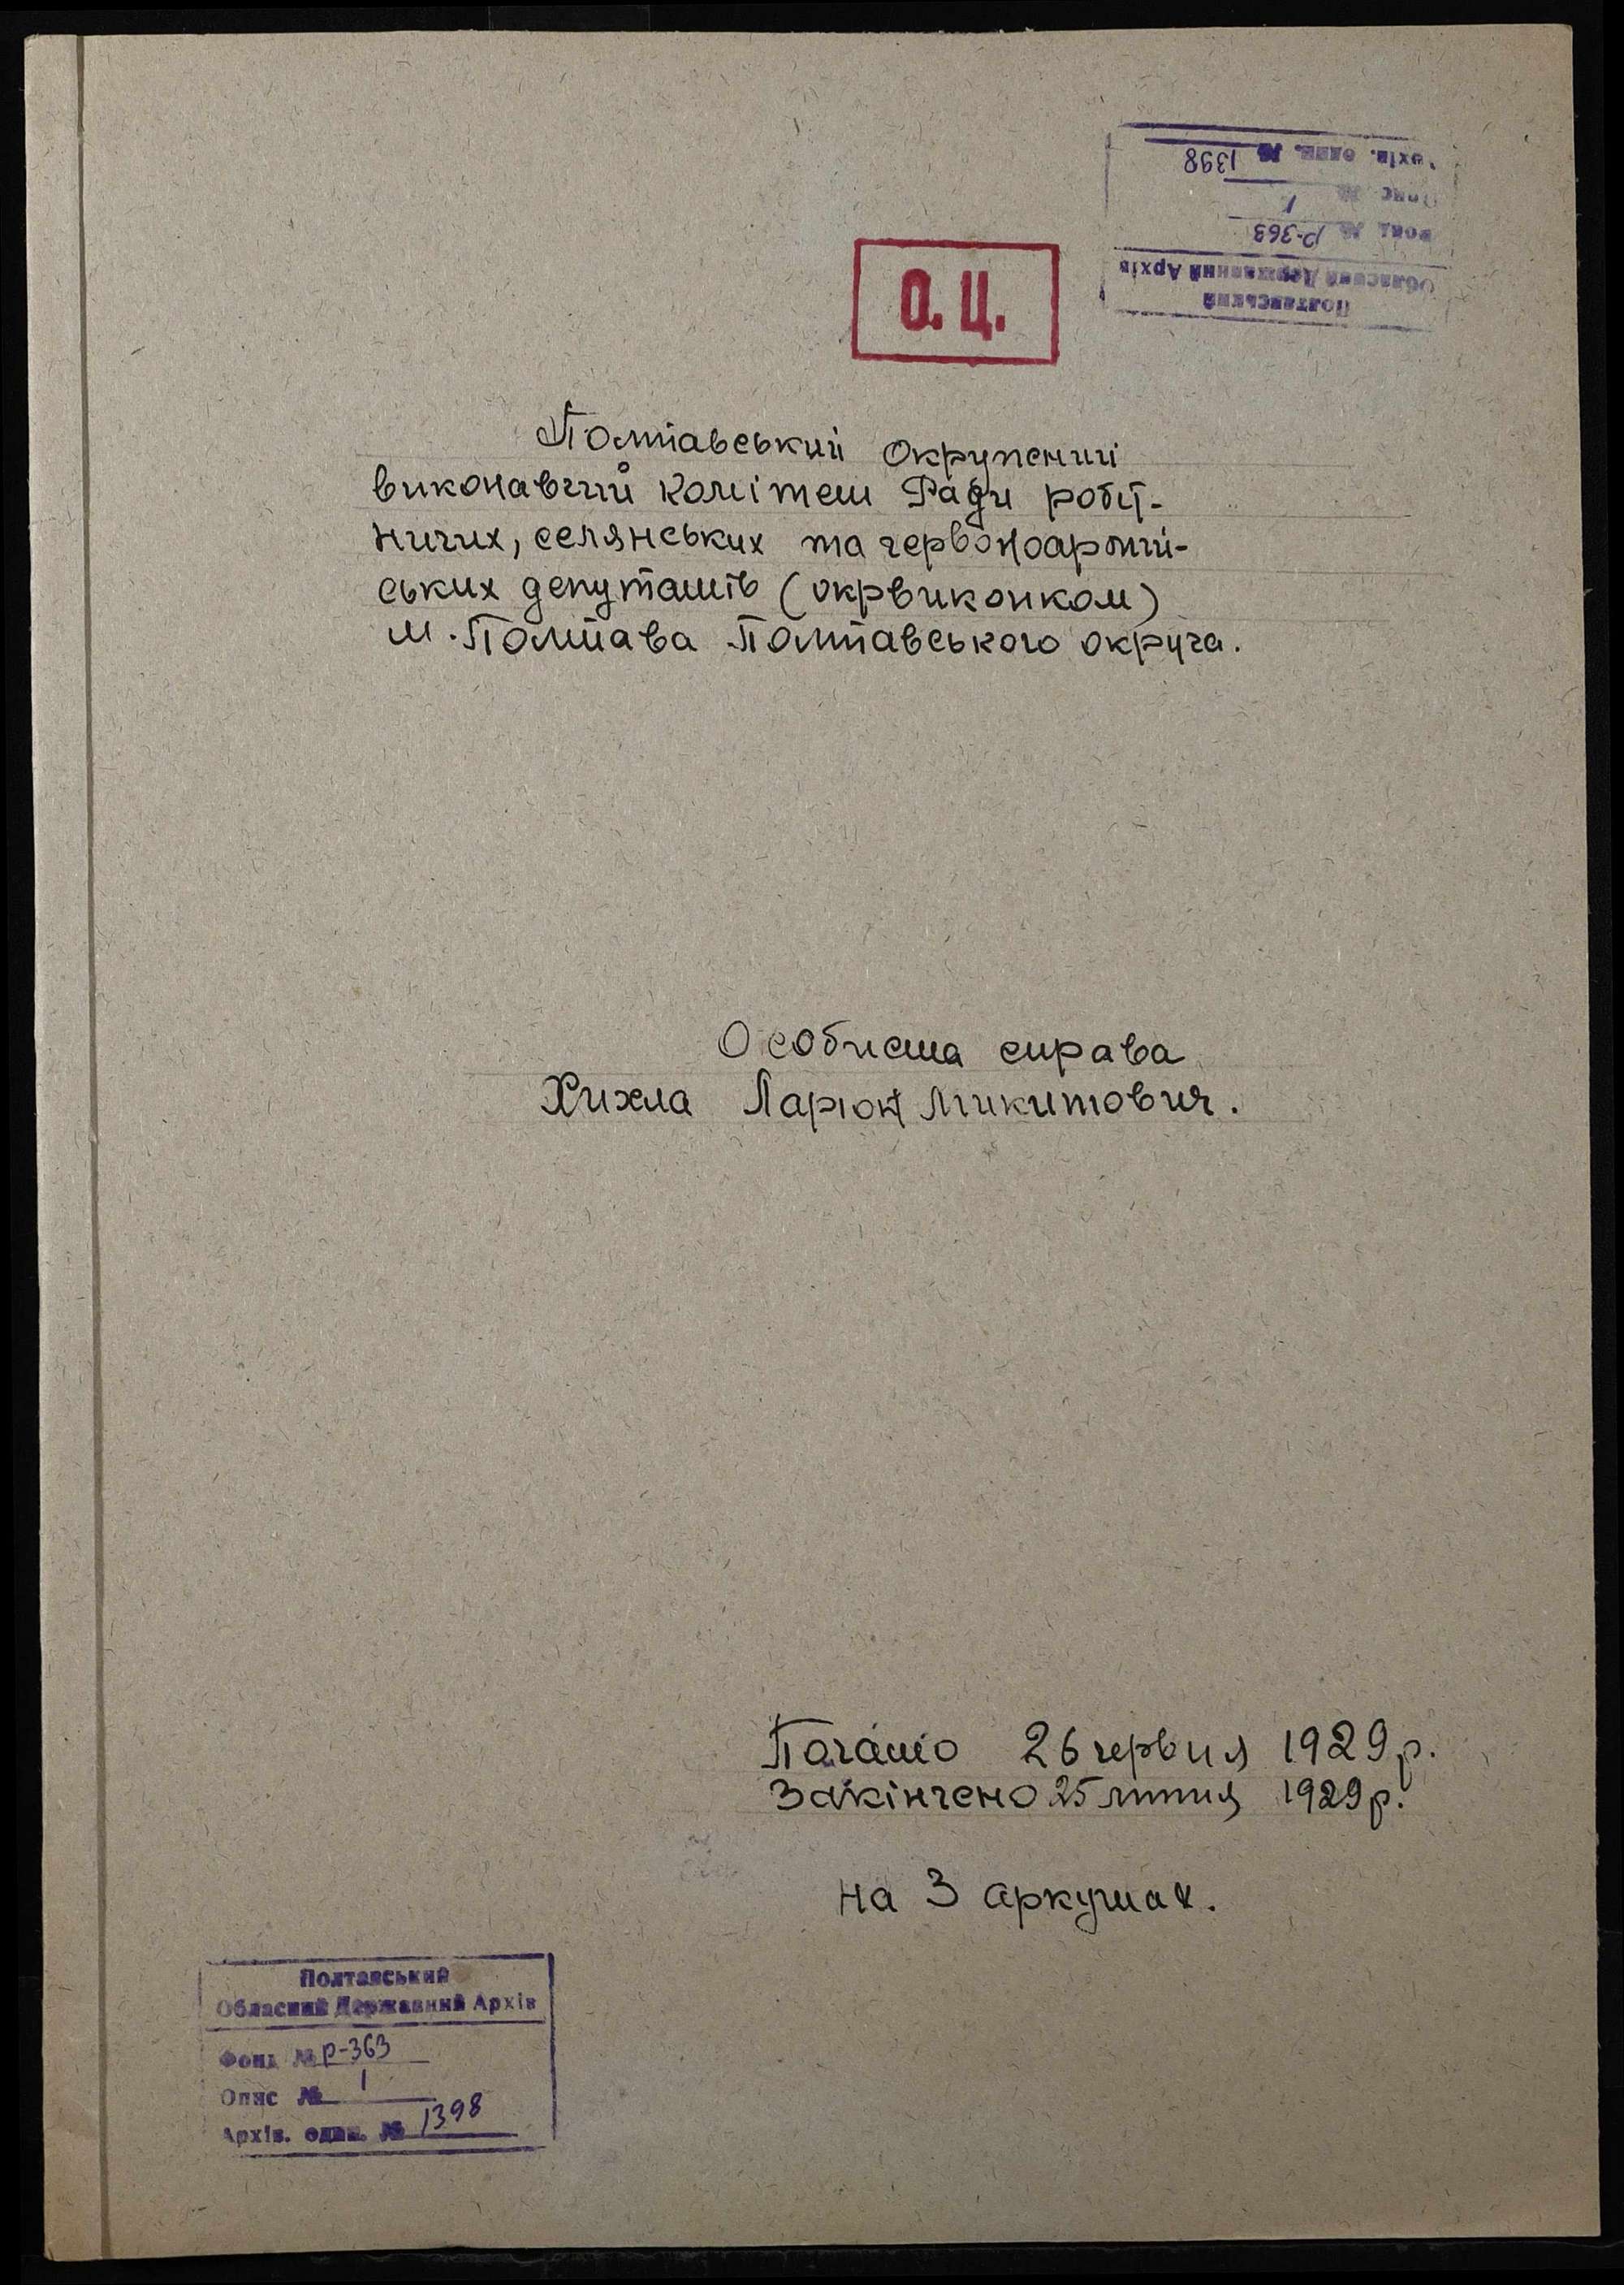 Полтавський
Обласний Державний Архів
Фонд № Р-363
Опис № 1
Архів. один. № 1398
О. Ц.
Полтавський Окружний
виконавчий комітет Ради робіт-
ничих, селянських та червоноармій-
ських депутатів (окрвиконком)
м. Полтава Полтавського округа.
Особиста справа
Хихла Ларіон Микитович.
Почато 26 червня 1929 р.
Закінчено 25 липня 1929 р.
на 3 аркушах.
Полтавський
Обласний Державний Архів
Фонд № Р-363
Опис № 1
Архів. один. № 1398